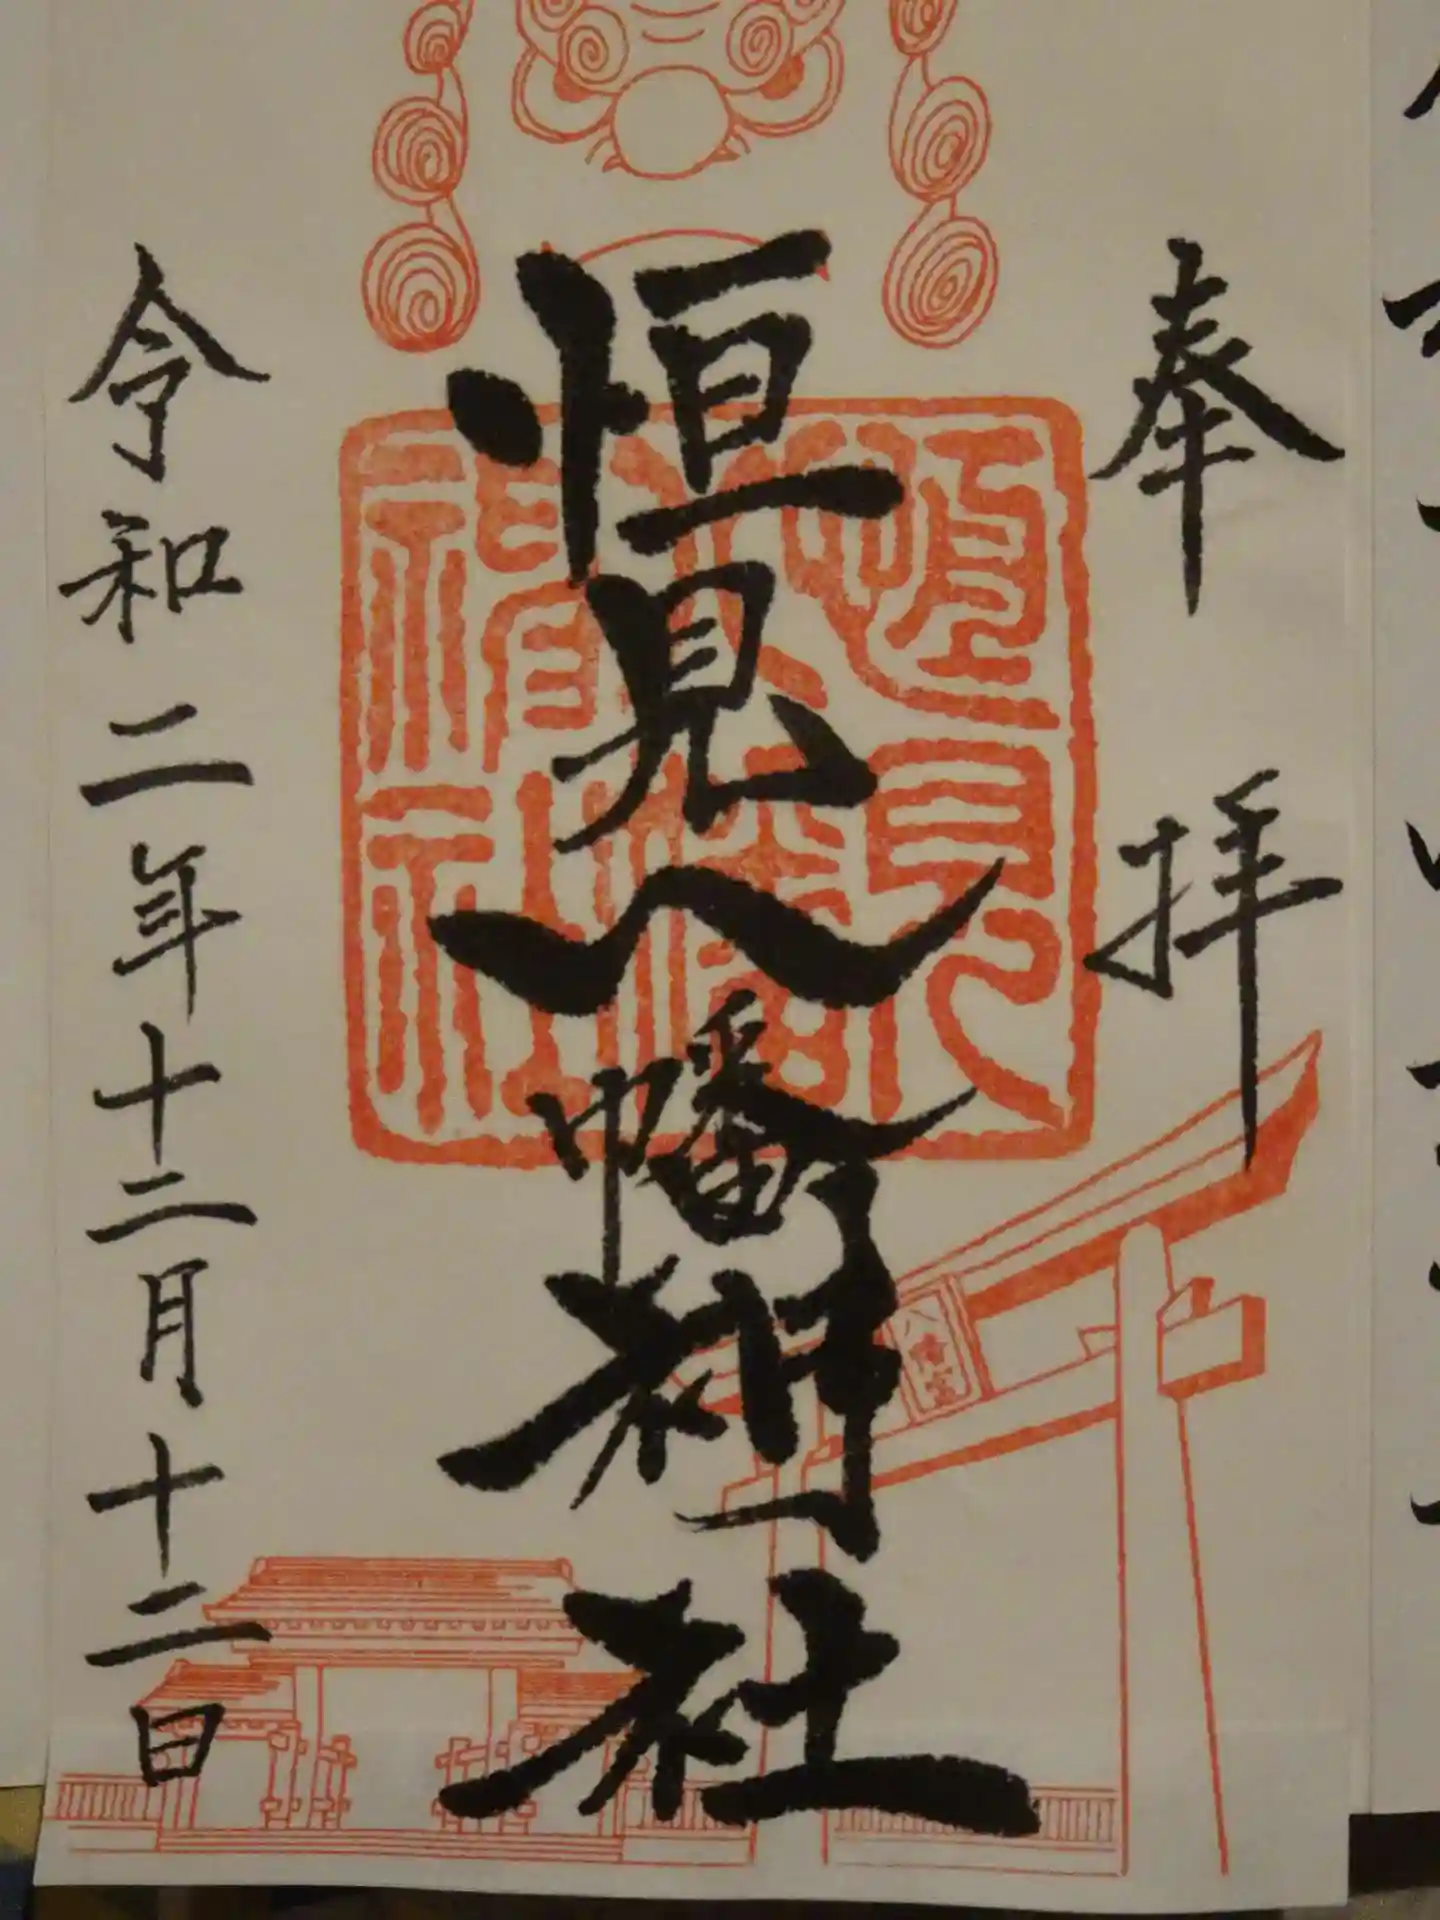 奉拝
恒見八幡神社
恒見八幡神社
八幡宮
令和二年十二月十二日